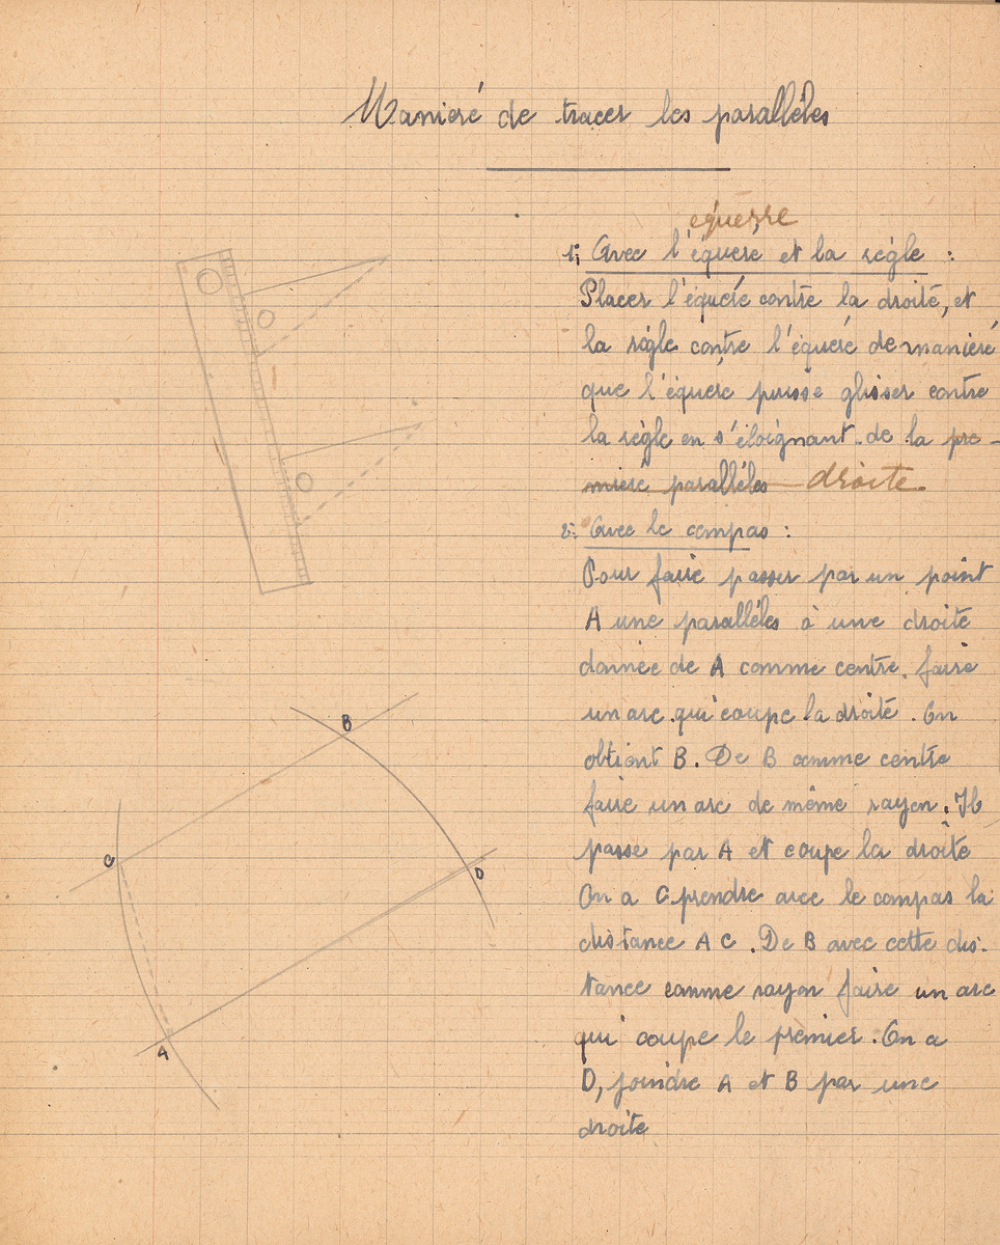 Manieré de tracer les paralléles
équerre
1; Avec l'équeré et la règle :
Placer l'équeré contre la droité, et
la règle contre l'équeré de manieré
que l'équeré puisse glisser contre
la règle en s'éloignant de la pre-
mieré paralléles droite.
2; Avec le compas :
Pour faire passer par un point
A une paralléles à une droité
donnée de A comme centre. faire
un arc qui coupe la droité. On
obtient B. De B comme centre
faire un arc de même rayon. Il
passe par A et coupe la droite
On a C prendre avec le compas la
distance A C. De B avec cette dis-
tance comme rayon faire un arc
qui coupe le premier. On a
D, joindre A et B par une
droite
B
C
D
A